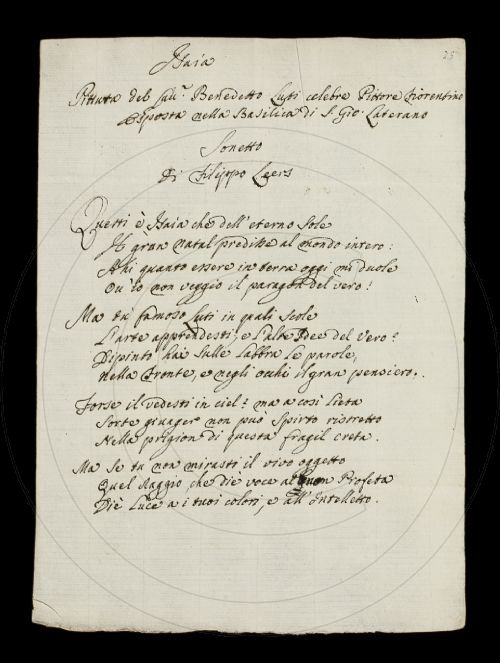 25
Isaia
Pittura del Cau.r Benedetto Luti celebre Pittore Fiorentino
esposta nella Basilica di S. Gio. Laterano
Sonetto
Di Filippo Leers
Questi è Isaia che dell'eterno Sole
Il gran natal predisse al mondo intero:
Ahi quanto essere in terra oggi mi duole
Ov'io non veggio il paragon del vero!
Ma tù famoso Luti in quali Scole
L'arte apprendesti, e l'alte Idee del Vero?
Dipinto hai sulle labbra le parole,
Nella Fronte, e negli occhi il gran pensiero.
Forse il vedesti in Ciel? ma a così lieta
Sorte giunger non può Spirto ristretto
Nella prigion di questa fragil creta.
Ma se tu non mirasti il vivo oggetto
Quel Raggio, che diè voce al Profeta
Diè Luce a i tuoi colori, e all'Intelletto.